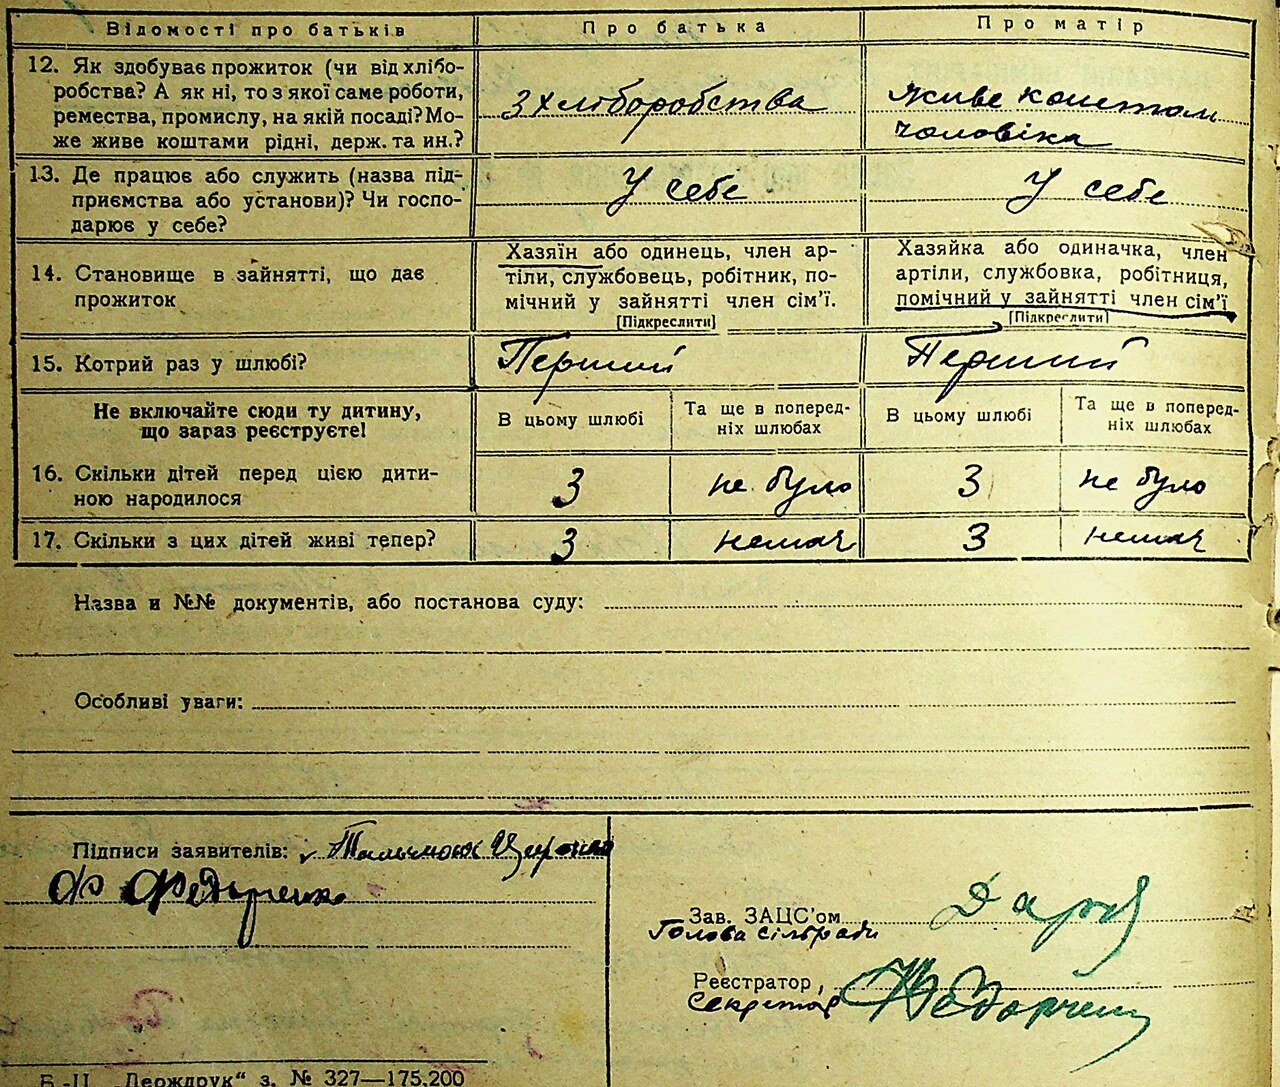 Відомості про батьків
Про батька
Про матір
12. Як здобуває прожиток (чи від хлібо-
робства? А як ні, то з якої саме роботи,
ремества, промислу, на якій посаді? Мо-
же живе коштами рідні, держ. та ин.?
З хліборобства
Живе коштом
чоловіка
13. Де працює або служить (назва під-
приємства або установи)? Чи госпо-
дарює у себе?
У себе
У себе
14. Становище в зайнятті, що дає
прожиток
Хазяїн або одинець, член ар-
тіли, службовець, робітник, по-
мічний у зайнятті член сім'ї.
[Підкреслити]
Хазяйка або одиначка, член
артіли, службовка, робітниця,
помічний у зайнятті член сім'ї
[Підкреслити]
15. Котрий раз у шлюбі?
Перший
Перший
Не включайте сюди ту дитину,
що зараз реєструєте!
В цьому шлюбі
Та ще в поперед-
ніх шлюбах
В цьому шлюбі
Та ще в поперед-
ніх шлюбах
16. Скільки дітей перед цією дити-
ною народилося
3
не було
3
не було
17. Скільки з цих дітей живі тепер?
3
немає
3
немає
Назва и №№ документів, або постанова суду:
Особливі уваги:
Підписи заявителів:
Зав. ЗАЦС'ом
Голова сільради
Реєстратор,
Секретар
Б.-Ц. „Держдрук“ з. № 327—175.200